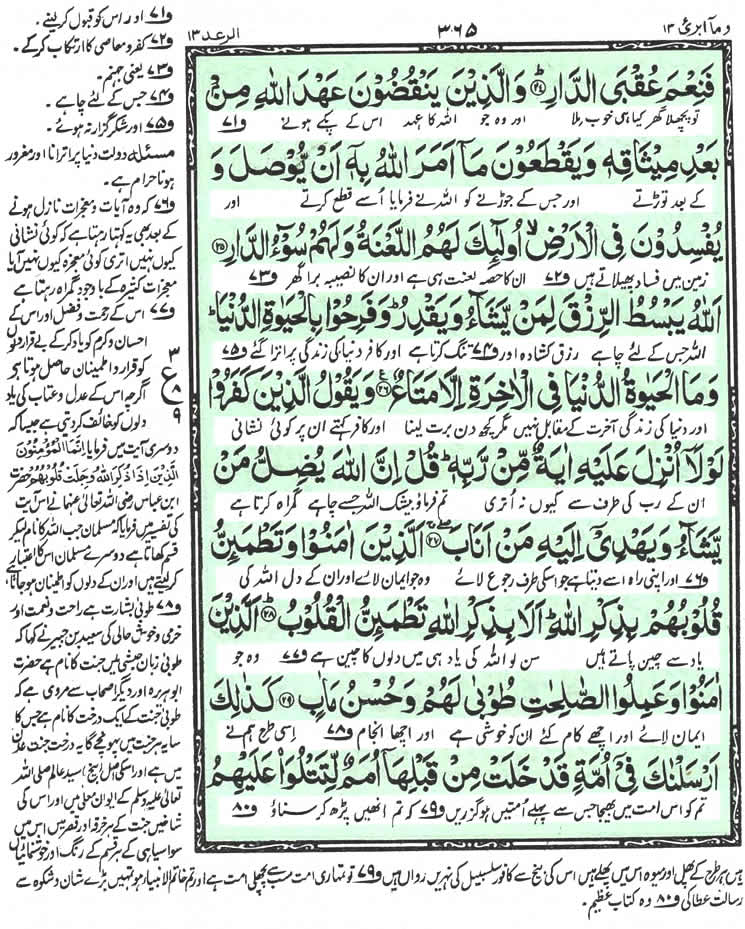 وما ابرئ ۱۳
۳۶۵
الرعد ۱۳
فَنِعْمَ عُقْبَى الدَّارِ ﴿۲۴﴾ وَالَّذِيْنَ يَنْقُضُوْنَ عَهْدَ اللّٰهِ مِنْۢ
تو پچھلا گھر کیا ہی خوب ملا اور وہ جو اللہ کا عہد اس کے پکے ہونے ف۷۱
بَعْدِ مِيْثَاقِهٖ وَيَقْطَعُوْنَ مَاۤ اَمَرَ اللّٰهُ بِهٖۤ اَنْ يُّوْصَلَ وَ
کے بعد توڑتے اور جس کے جوڑنے کو اللہ نے فرمایا اُسے قطع کرتے اور
يُفْسِدُوْنَ فِى الْاَرْضِ ۙ اُولٰٓئِكَ لَهُمُ اللَّعْنَةُ وَلَهُمْ سُوْٓءُ الدَّارِ ﴿۲۵﴾
زمین میں فساد پھیلاتے ہیں ف۷۲ ان کا حصہ لعنت ہی ہے اور ان کا نصیبہ برا گھر ف۷۳
اَللّٰهُ يَبْسُطُ الرِّزْقَ لِمَنْ يَّشَآءُ وَيَقْدِرُ ؕ وَفَرِحُوْا بِالْحَيٰوةِ الدُّنْيَا ؕ
اللہ جس کے لئے چاہے رزق کشادہ اور ف۷۴ تنگ کرتا ہے اور کافر دنیا کی زندگی پر اترا گئے ف۷۵
وَمَا الْحَيٰوةُ الدُّنْيَا فِى الْاٰخِرَةِ اِلَّا مَتَاعٌ ﴿۲۶﴾ وَيَقُوْلُ الَّذِيْنَ كَفَرُوْا
اور دنیا کی زندگی آخرت کے مقابل نہیں مگر کچھ دن برت لینا اور کافر کہتے ان پر کوئی نشانی
لَوْلَاۤ اُنْزِلَ عَلَيْهِ اٰيَةٌ مِّنْ رَّبِّهٖ ؕ قُلْ اِنَّ اللّٰهَ يُضِلُّ مَنْ
ان کے رب کی طرف سے کیوں نہ اُتری تم فرماؤ بیشک اللہ جسے چاہے گمراہ کرتا ہے
يَّشَآءُ وَيَهْدِىْۤ اِلَيْهِ مَنْ اَنَابَ ﴿۲۷﴾ اَلَّذِيْنَ اٰمَنُوْا وَتَطْمَئِنُّ
ف۷۶ اور اپنی راہ اسے دیتا ہے جو اس کی طرف رجوع لائے وہ جو ایمان لائے اور ان کے دل اللہ کی
قُلُوْبُهُمْ بِذِكْرِ اللّٰهِ ؕ اَلَا بِذِكْرِ اللّٰهِ تَطْمَئِنُّ الْقُلُوْبُ ﴿۲۸﴾ اَلَّذِيْنَ
یاد سے چین پاتے ہیں سن لو اللہ کی یاد ہی میں دلوں کا چین ہے ف۷۷ وہ جو
اٰمَنُوْا وَعَمِلُوا الصّٰلِحٰتِ طُوْبٰى لَهُمْ وَحُسْنُ مَاٰبٍ ﴿۲۹﴾ كَذٰلِكَ
ایمان لائے اور اچھے کام کئے ان کو خوشی ہے اور اچھا انجام ف۷۸ اِسی طرح ہم نے
اَرْسَلْنٰكَ فِىْۤ اُمَّةٍ قَدْ خَلَتْ مِنْ قَبْلِهَاۤ اُمَمٌ لِّتَتْلُوَا۟ عَلَيْهِمُ
تم کو اس امت میں بھیجا جس سے پہلے اُمتیں ہو گزریں ف۷۹ کہ تم انھیں پڑھ کر سناؤ ف۸۰
ف۷۱ اور اس کو قبول کر لینے۔
ف۷۲ کفر و معاصی کا ارتکاب کر کے۔
ف۷۳ یعنی جہنم۔
ف۷۴ جس کے لئے چاہے۔
ف۷۵ اور شکر گزار نہ ہوئے۔
مسئلہ دولت دنیا پر اترانا اور مغرور
ہونا حرام ہے۔
ف۷۶ کہ وہ آیات و معجزات نازل ہونے
کے بعد بھی یہ کہتا رہتا ہے کہ کوئی نشانی
کیوں نہیں اتری کوئی معجزہ کیوں نہیں آیا
معجزات کثیرہ کے باوجود گمراہ رہتا ہے
ف۷۷ اس کے رحمت و فضل اور اس کے
احسان و کرم کو یاد کر کے بے قرار دلوں
کو قرار و اطمینان حاصل ہوتا ہے
اگرچہ اس کے عدل و عتاب کی یاد
دلوں کو خائف کر دیتی ہے جیسا کہ
دوسری آیت میں فرمایا اِنَّمَا الْمُؤْمِنُوْنَ
الَّذِيْنَ اِذَا ذُكِرَ اللّٰهُ وَجِلَتْ قُلُوْبُهُمْ حضرت
ابن عباس رضی اللہ تعالیٰ عنہما نے اس آیت
کی تفسیر میں فرمایا کہ مسلمان جب اللہ کا نام لیکر
قسم کھاتا ہے دوسرے مسلمان اس کا اعتبار
کر لیتے ہیں اور ان کے دلوں کو اطمنان ہو جاتا ہے
ف۷۸ طوبیٰ بشارت ہے راحت و نعمت اور
خرمی و خوش حالی کی سعید بن جبیر نے کہا کہ
طوبیٰ زبان حبشی میں جنت کا نام ہے حضرت
ابو ہریرہ اور دیگر اصحاب سے مروی ہے کہ
طوبیٰ جنت کے ایک درخت کا نام ہے جس کا
سایہ ہر جنت میں پہونچے گا یہ درخت جنت عدن
میں ہے اور اسکی اصل (بیخ) سید عالم صلی اللہ
تعالیٰ علیہ وسلم کے ایوان معلی میں اور اس کی
شاخیں جنت کے ہر غرفہ اور قصر میں اس میں
سوا سیاہی کے ہر قسم کے رنگ اور خوشنمائیاں
۳
ع
۸
۹
ہیں ہر طرح کے پھل اور میوہ اس میں پھلتے ہیں اس کی بیخ سے کافور سلسبیل کی نہریں رواں ہیں ف۷۹ تو تمہاری امت سب سے پچھلی امت ہے اور تم خاتم الانبیاء ہو تمہیں بڑے شان و شکوہ سے
رسالت عطا کی ف۸۰ وہ کتاب عظیم۔